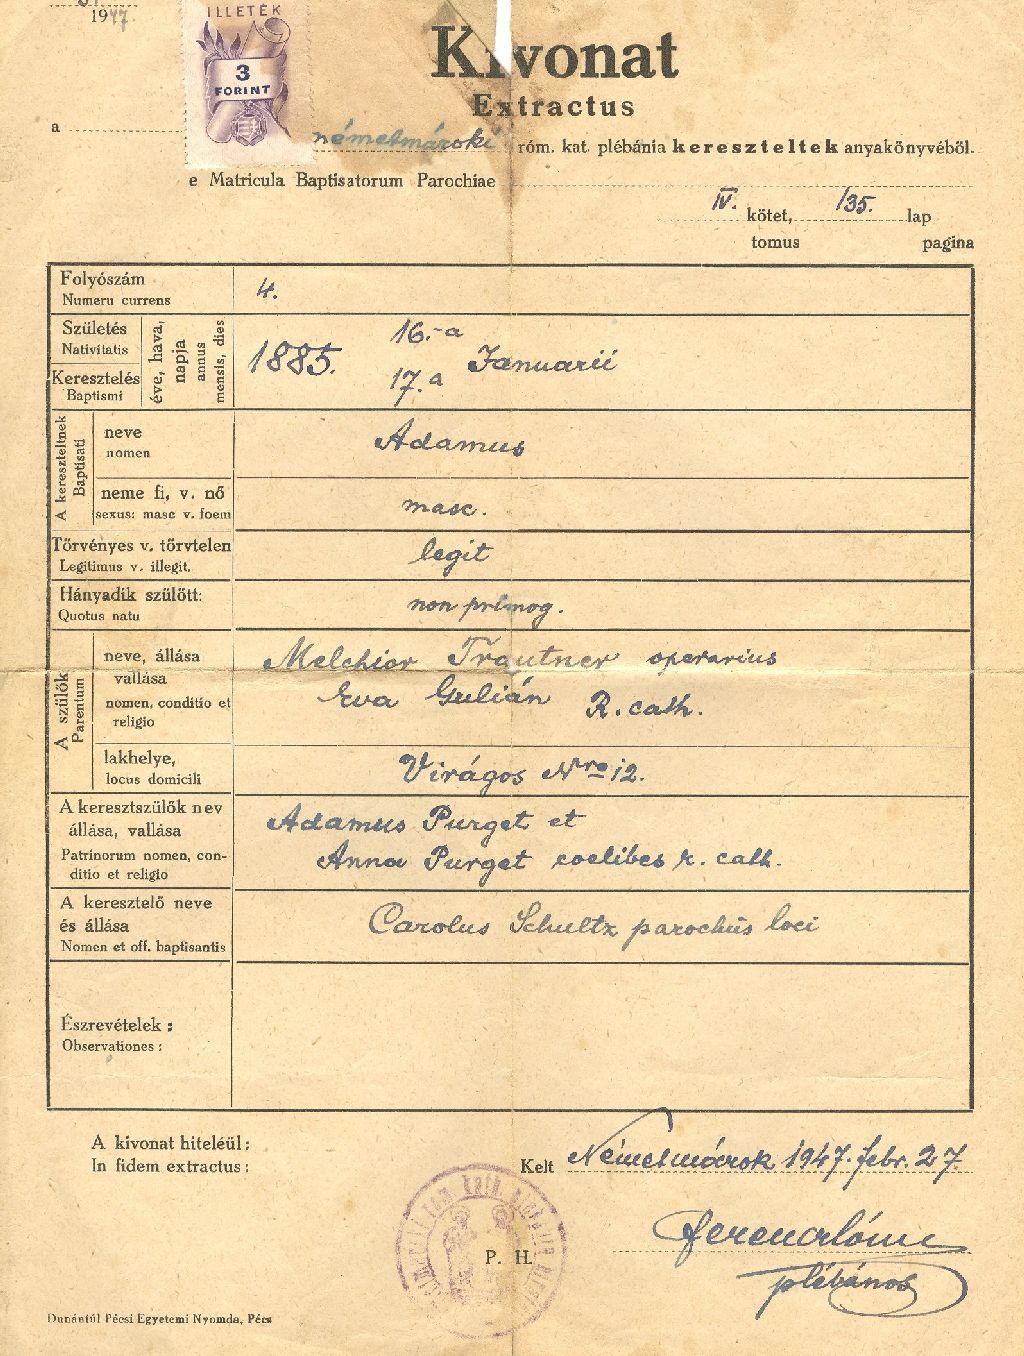 1947
ILLETÉK
3
FORINT
Kivonat
Extractus
a németmároki róm. kat. plébánia kereszteltek anyakönyvéből.
e Matricula Baptisatorum Parochiae
IV. kötet, 135. lap
tomus pagina
Folyószám
Numeru currens
4.
Születés
Nativitatis
Keresztelés
Baptismi
éve, hava,
napja
annus
mensis, dies
1885. 16.-a
17.a Januarii
A kereszteltnek
Baptisati
neve
nomen
Adamus
neme fi, v. nő
sexus: masc v. foem
masc.
Törvényes v. törvtelen
Legitimus v. illegit.
legit
Hányadik szülött:
Quotus natu
non primog.
A szülők
Parentium
neve, állása
vallása
nomen, conditio et
religio
Melchior Trautner operarius
Eva Gulián R. cath.
lakhelye,
locus domicili
Virágos Nro 12.
A keresztszülők nev
állása, vallása
Patrinorum nomen, con-
ditio et religio
Adamus Purget et
Anna Purget coelibes r. cath.
A keresztelő neve
és állása
Nomen et off. baptisantis
Carolus Schultz parochus loci
Észrevételek :
Observationes :
A kivonat hiteléül :
In fidem extractus :
Kelt Németmárok 1947. febr. 27.
P. H.
plébános
Dunántúl Pécsi Egyetemi Nyomda, Pécs